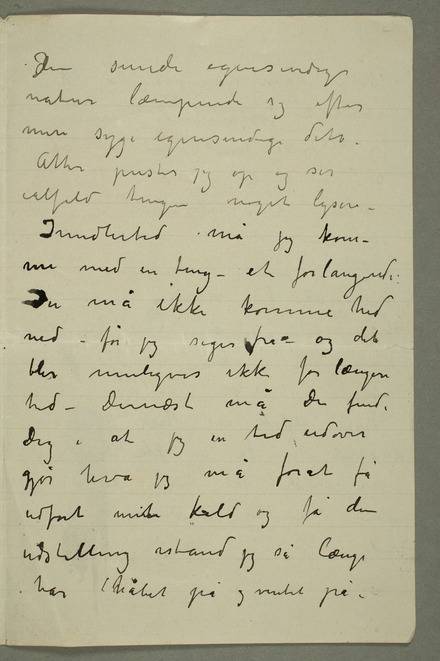 Din sunde egensindige
natur læmpende sig efter
min syge egensindige dito.
Atter puster jeg op og ser
ialfald tingen noget lysere –
Imidlertid må jeg kom-
me med en ting – et forlangende:
Du må ikke komme hid
ned – før jeg siger fra – og det
blir muligvis ikke for længere
tid – Dernæst må Du finde
Dig i at jeg en tid udover
gjør hva jeg må forat få
udført mit kald og få den
udstilling istand jeg så længe
har håbet på og ventet på.